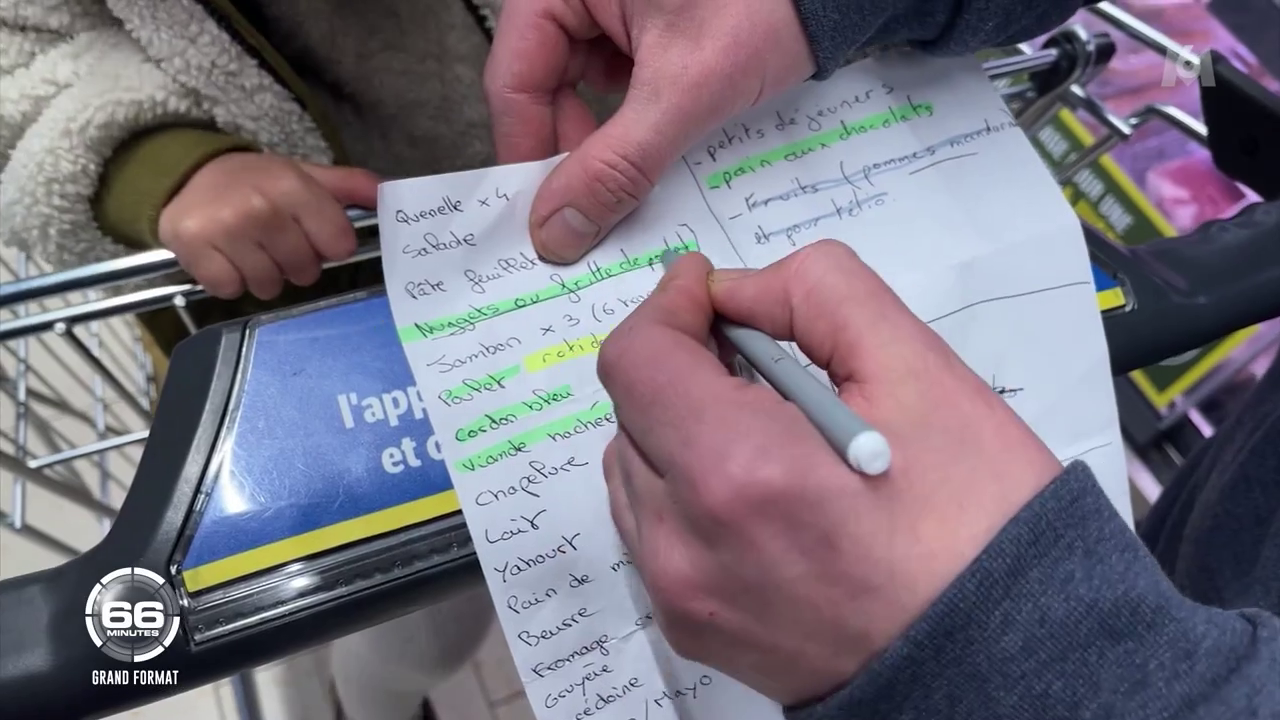 Quenelle x 4
Salade
Pâte feuilleté
Nuggets ou grille de poulet
Jambon x 3 (6
Poulet roti
Cordon bleu
Viande hachée
Chapelure
Lait
Yahourt
Pain de mi
Beurre
Fromage
Gruyère
cédoine
/Mayo
- petits déjeuners
- pain aux chocolats
- Fruits (pommes mandarin
et pour Hélio.
l'app
et c
UR UNE
M6
66
MINUTES
GRAND FORMAT